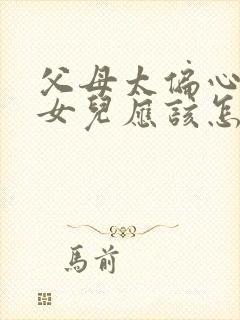 父母太偏心
女兒應該怎
馬前